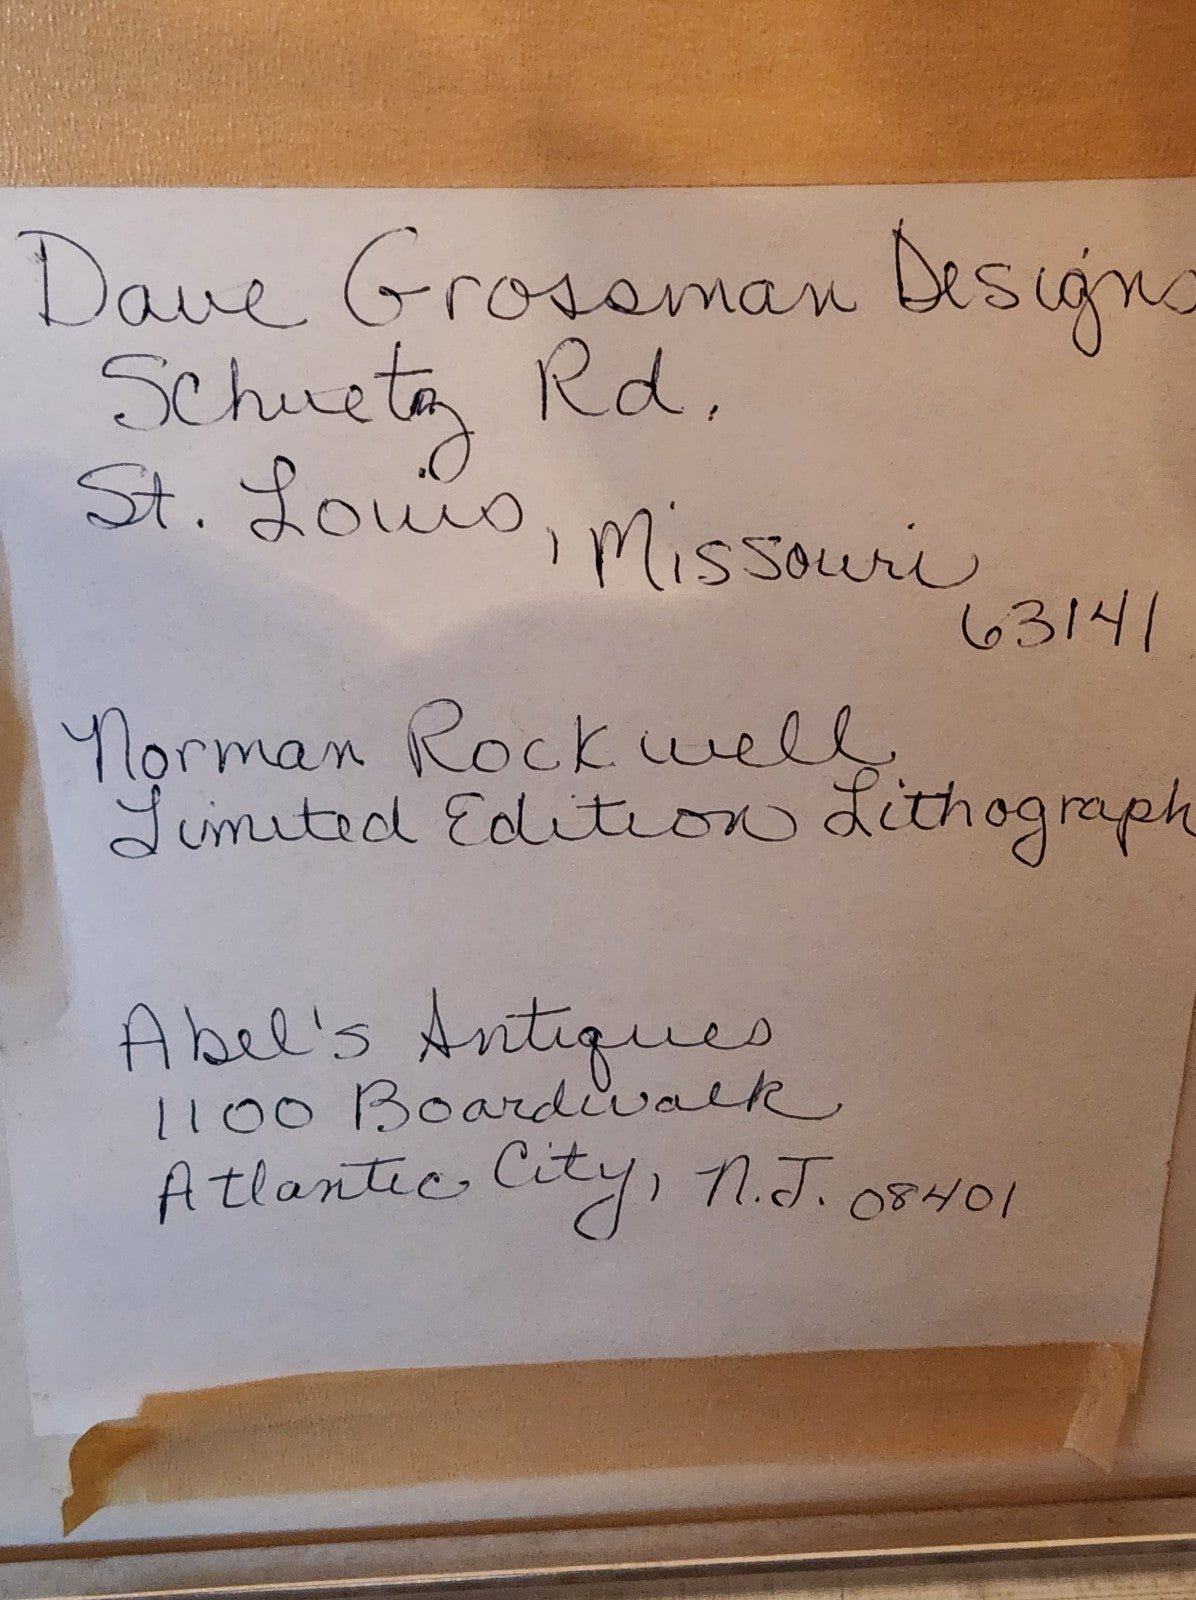 Dave Grossman Designs
Schuetz Rd.
St. Louis, Missouri
63141
Norman Rockwell
Limited Edition Lithograph
Abel's Antiques
1100 Boardwalk
Atlantic City, N.J. 08401